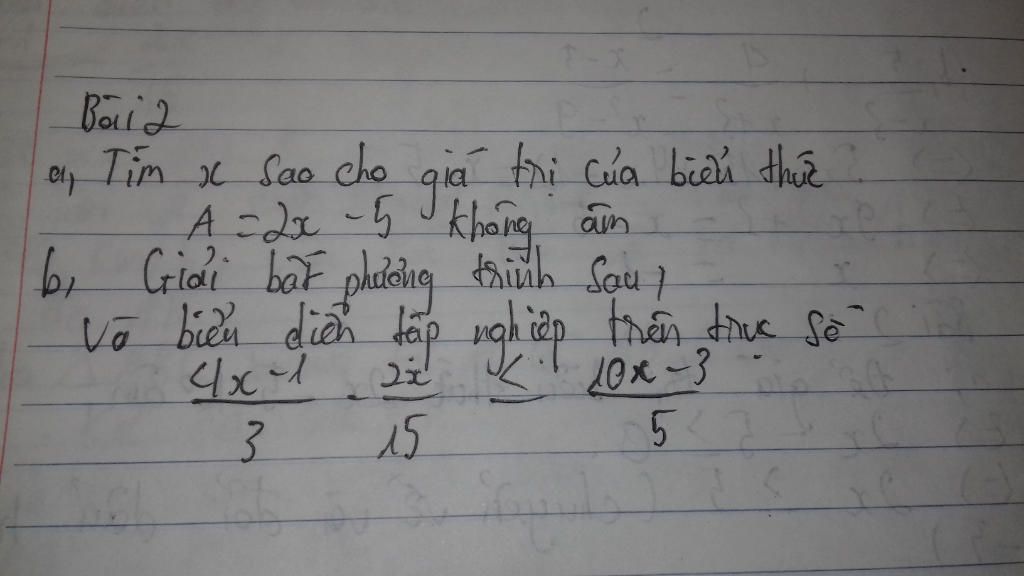 Bài 2
a, Tìm x sao cho giá trị của biểu thức
A = 2x - 5 không âm
b, Giải bất phương trình sau,
Và biểu diễn tập nghiệp trên trục số
4x - 1 / 3 - 2x / 15 ≤ 10x - 3 / 5